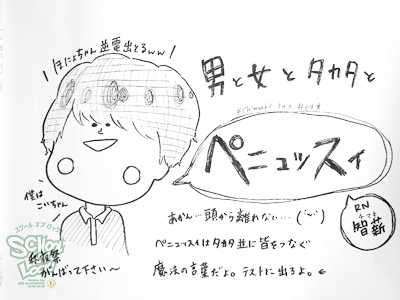 ほにょちゃん並電出とるww
男と女とタカタと
ペニュッスィ
僕は
こいちゃん
あかん…頭から離れない…
ペニュッスィはタカタ並に皆をつなぐ
魔法の言葉だよ。テストに出るよ。
RN
チマキ
智薪
スクール オブ ロック
がんばって下さい〜